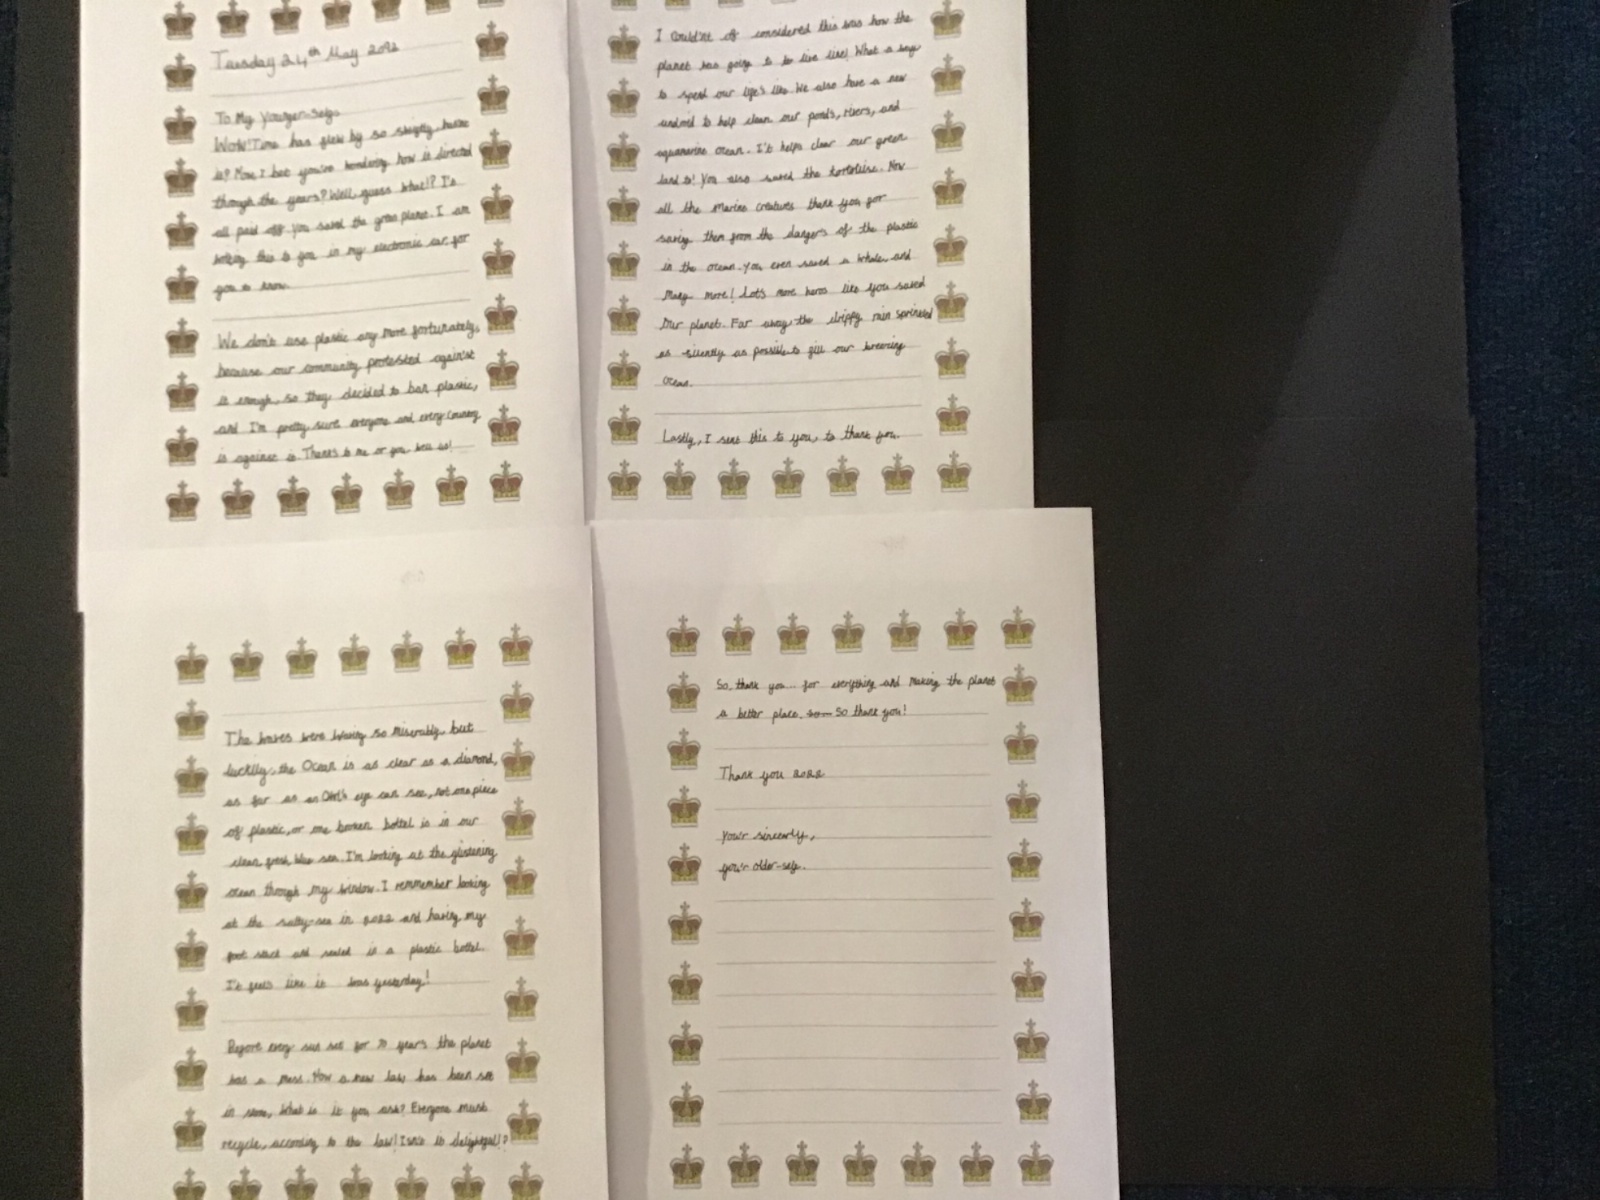 Tuesday 24th May 2092
To My Younger-self,
Wow! Time has flew by so swiftly, hasnt
it? Now I bet you're wondering how is directed
through the years? Well, guess what!? It's
all paid off. You saved the green planet. I am
writing this to you in my electronic car, for
you to know.
We don't use plastic any more fortunately,
because our community protested against
it enough, so they decided to ban plastic,
and I'm pretty sure everyone and every country
is against it. Thanks to me or you, how is!
The waves were waving so miserably, but
luckily, the Ocean is as clear as a diamond,
as far as an Owl's eye can see, not one piece
of plastic, or one broken bottel is in our
clean, fresh, blue sea. I'm looking at the glistening
ocean through my window. I remmember looking
at the salty-sea in 2022 and having my
foot stuck and sealed in a plastic bottel.
It feels like it was yesterday!
Before every sun set for 70 years the planet
was a mess. Now a new law has been set
in stone, What is it you ask? Everyone must
recycle, according to the law! Isn't it delightful!?
I Could'nt of considered this was how the
planet was going to be live like! What a way
to spend our life's like. We also have a new
android to help clean our ponds, rivers, and
aquamarine ocean. It helps clear our green
land to! You also saved the tortoise. Now
all the Marine creatures thank you for
saving them from the dangers of the plastic
in the ocean. You even saved a whale, and
Many more! Lot's more heros like you saved
Our planet. Far away, the drippy rain sprinkled
as silently as possible to fill our
ocean.
Lastly, I sent this to you, to thank you.
So, thank you... for everything and Making the planet
a better place. So thank you!
Thank you 2022
Your sincerly,
your older-self.